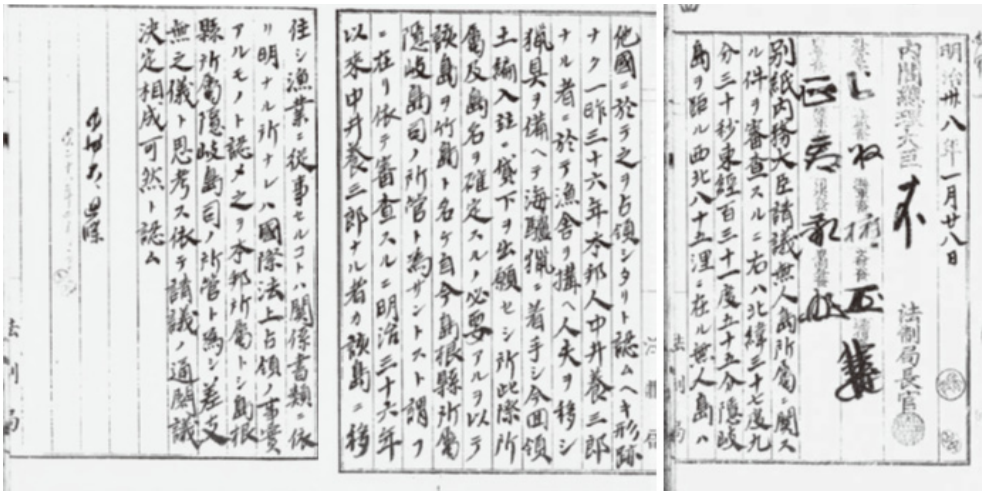 明治卅八年一月廿八日
内閣總理大臣
法制局長官
別紙内務大臣請議無人島所屬ニ關ス
ル件ヲ審査スルニ右ハ北緯三十七度九
分三十秒東經百三十一度五十五分隱岐
島ヲ距ル西北八十五浬ニ在ル無人島ハ
他國ニ於テ之ヲ占領シタリト認ムヘキ形跡
ナク一昨三十六年本邦人中井養三郎
ナル者ニ於テ漁舍ヲ構ヘ人夫ヲ移シ
獵具ヲ備ヘテ海驢獵ニ着手シ今回領
土編入並ニ貸下ヲ出願セシ所此際所
屬及島名ヲ確定スルノ必要アルヲ以テ
該島ヲ竹島ト名ケ自今島根縣所屬
隱岐島司ノ所管ト爲サントスト謂フ
ニ在リ依テ審査スルニ明治三十六年
以來中井養三郎ナル者カ該島ニ移
住シ漁業ニ從事セルコトハ關係書類ニ依
リ明ナル所ナレハ國際法上占領ノ事實
アルモノト認メ之ヲ本邦所屬トシ島根
縣所屬隱岐島司ノ所管ト爲シ差支
無之儀ト思考ス依テ請議ノ通閣議
決定相成可然ト認ム
法制局